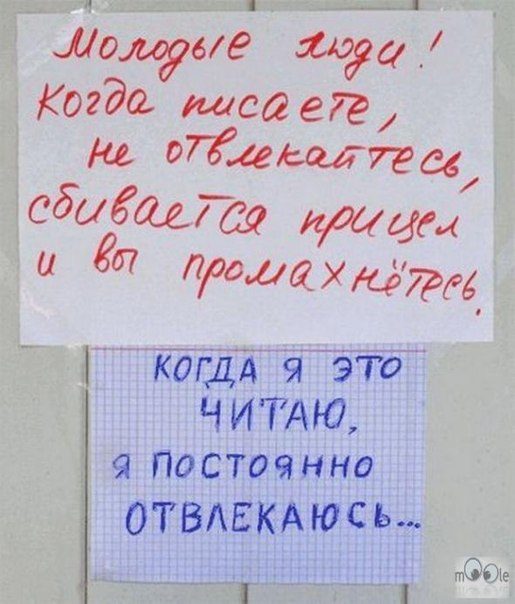 Молодые люди!
Когда писаете,
не отвлекайтесь,
сбивается прицел
и вы промахнётесь.
КОГДА Я ЭТО
ЧИТАЮ,
Я ПОСТОЯННО
ОТВЛЕКАЮСЬ...